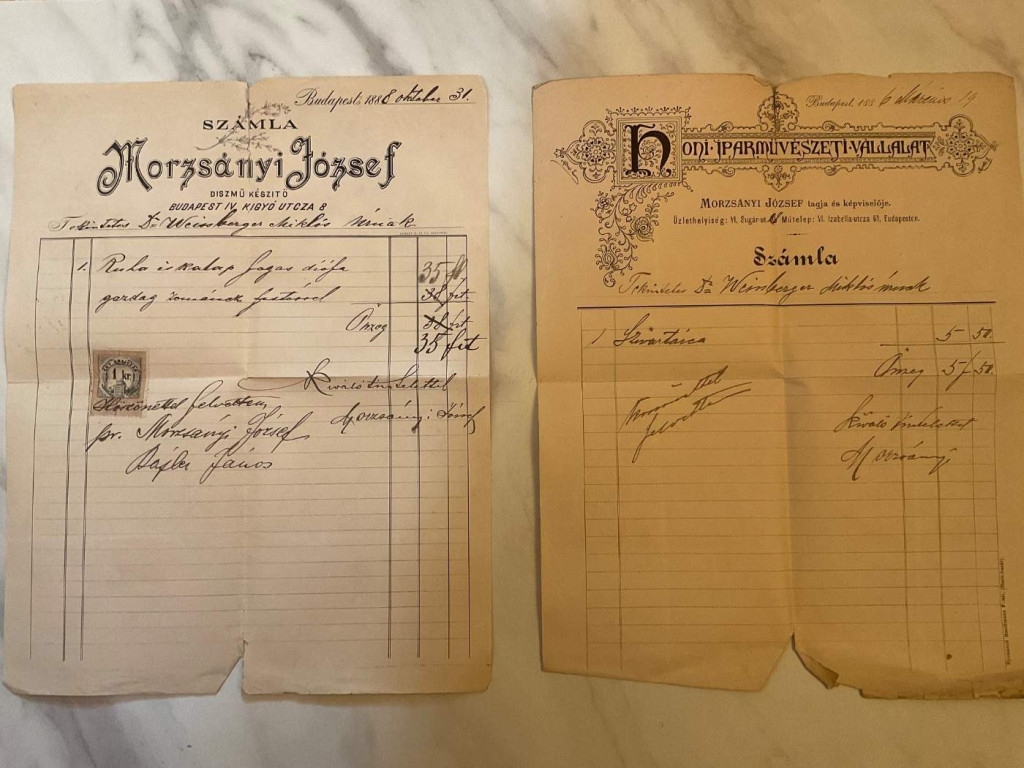 Budapest, 1888 oktober 31.
SZÁMLA
Morzsányi József
DISZMŰ KÉSZITŐ
BUDAPEST IV, KIGYÓ UTCZA 8
Tekintetes Dr Weinberger Miklós úrnak
1. Ruha és kalap fogas diófa 35 frt
gazdag festéssel 38 frt
38 frt
35 frt
1 kr.
Kiváló tisztelettel
Köszönettel felvettem
Morzsányi József
pr. Morzsanyi József
János
Budapest, 1886 Március 19
HONI·IPARMŰVÉSZETI·VÁLLALAT
MORZSÁNYI JÓZSEF tagja és képviselője.
Üzlethelyiség: VI. Sugár-ut Műtelep: VI. Izabella-utcza 61, Budapesten.
Számla
Tekintetes Dr Weinberger Miklós úrnak
1 Szivartárca 5 50.
5 50.
Köszönettel
felvettem
Kiváló tisztelettel
Morzsányi